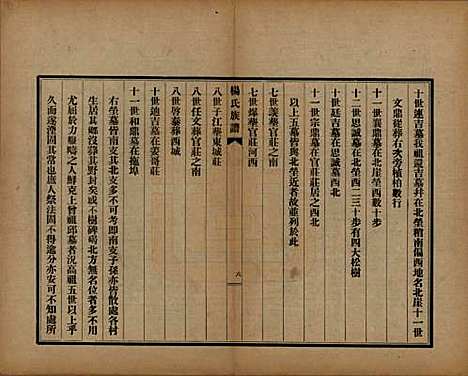 十世連吉墓我祖鳳吉墓并在北塋稍南偏西地名北崖十一世
文鼎從葬右次旁植柏數行
十一世襄鼎墓在北塋西數十步
十世思誠墓北塋西二三十步有四大松樹
十世廷吉墓在思誠墓西北
十一世宗鼎墓在官莊莊居之西北
以上五墓皆與北塋近者故並列於此
七世羨華官莊之南
七世爆華官莊河西
楊氏族譜
六
八世于江華東城莊
八世任文葬官莊之南
八世啓泰葬西城
十世迪吉墓在姜哥莊
十一世和鼎墓在拖埠
右塋墓皆南支其北支多不可考即南支子孫亦皆散處各村
生居其鄉沒葬其野封矣或不樹碑碣北方無名位者多不
尤屈於力靳嗇之人鮮克上曾祖邱墓者況高祖五世以上乎
久而遂湮固其常也族人祭法固不得過分亦安可不知處所